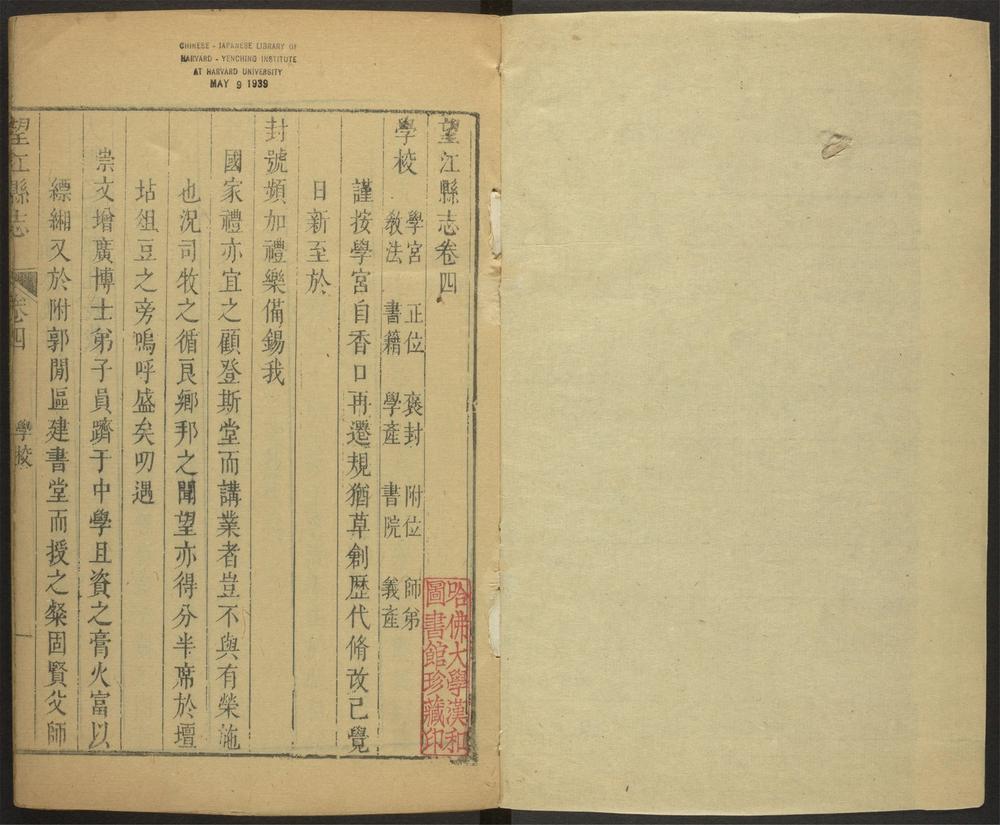 CHINESE - JAPANESE LIBRARY OF
HARVARD - YENCHING INSTITUTE
AT HARVARD UNIVERSITY
MAY 9 1939
望江縣志卷四
學校 學宮 正位 褒封 附位 師弟
教法 書籍 學產 書院 義產
謹按學宮自香口再遷規猶草創歷代脩改已覺
日新至於
封號頻加禮樂備錫我
國家禮亦宜之顧登斯堂而講業者豈不與有榮施
也況司牧之循良鄉邦之聞望亦得分半席於壇
坫俎豆之旁嗚呼盛矣叨遇
崇文增廣博士弟子員躋于中學且資之膏火富以
縹緗又於附郭閒區建書堂而授之粲固賢父師
望江縣志 卷四 學校 一
哈佛大學漢和
圖書館珍藏印